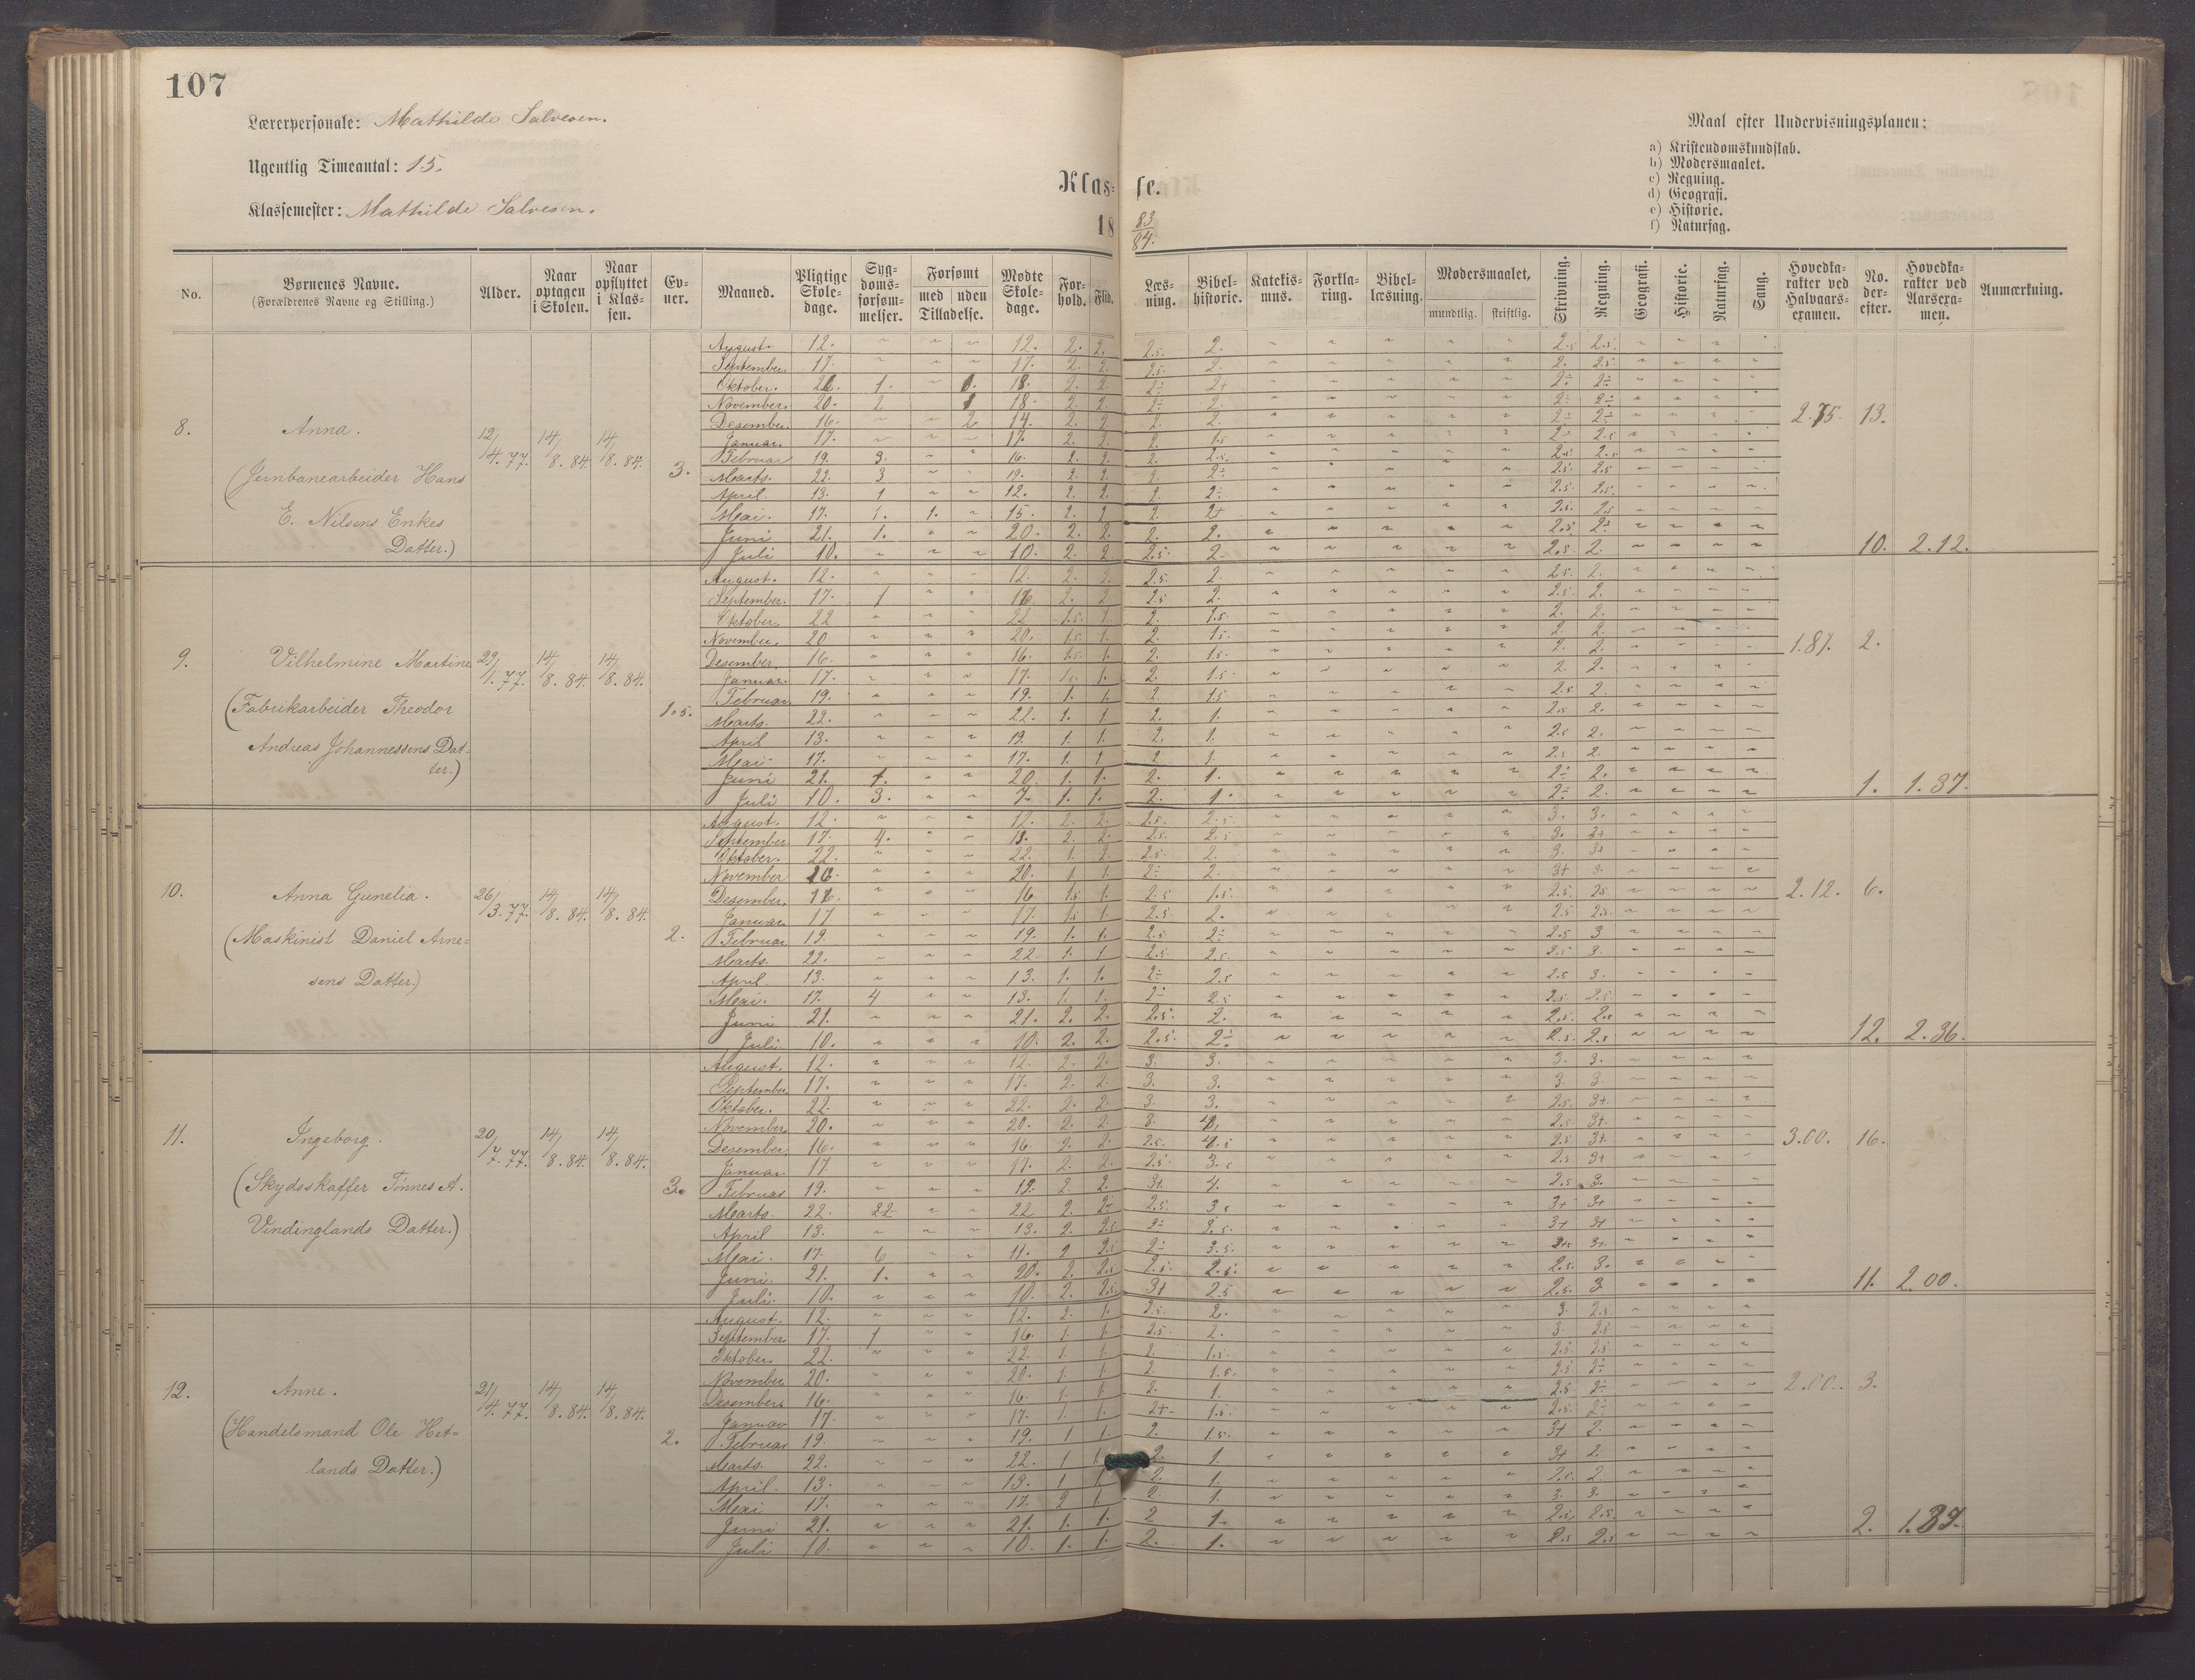 107
Lærerpersonale: Mathilde Salvesen.
Ugentlig Timeantal: 15.
Klassemester: Mathilde Salvesen.
Klasse.
18 83/84.
Maal efter Undervisningsplanen:
a) Kristendomskundskab.
b) Modersmaalet.
c) Regning.
d) Geografi.
e) Historie.
f) Naturfag.
No. | Børnenes Navne. (Forældrenes Navne og Stilling.) | Alder. | Naar optagen i Skolen. | Naar opflyttet i Klassen. | Evner. | Maaned. | Pligtige Skoledage. | Sygdomsforsømmelser. | Forsømt med / uden Tilladelse. | Mødte Skoledage. | Forhold. | Flid. | Læsning. | Bibelhistorie. | Katekismus. | Forklaring. | Bibellæsning. | Modersmaalet, mundtlig. / skriftlig. | Skrivning. | Regning. | Geografi. | Historie. | Naturfag. | Sang. | Hovedkarakter ved Halvaarsexamen. | No. derefter. | Hovedkarakter ved Aarsexamen. | Anmærkning.
8. Anna. 12/4.77. 14/8.84. 14/8.84. 3. 2.75. 13.
(Jernbanearbeider Hans
E. Nilsens Enkes
Datter.)
August. 12. 12. 2. 2. 2.5. 2. 2.5 2.5.
September. 17. 17. 2. 2. 2.5. 2. 2. 2.5.
Oktober. 1. 18. 2. 2. 2÷ 2+ 2÷ 2÷
November. 20. 18. 2. 2. 2÷ 2. 2÷ 2÷
Desember. 16. 2 14. 2. 2. 2. 2. 2÷ 2÷
Januar. 17. 17. 2. 2. 2. 1.5 2.5
Februar 19. 3. 16. 2. 2. 2. 2.5.
Marts. 22. 3 19. 2. 2. 2. 2÷ 2.5. 2.5
April. 13. 1 12. 2. 2. 2. 2÷ 2.5 2.5.
Mai. 17. 1. 1. 15. 2. 2 2. 2+ 2.5. 2.5
Juni 21. 1. 20. 2. 2. 2. 2. 2.5. 2÷
Juli 10. 10. 2. 2 2.5. 2. 2.5 2. 10. 2.12.
9. Vilhelmine Martine 29/1.77. 14/8.84. 14/8.84. 1.5. 1.87. 2.
(Fabrikarbeider Theodor
Andreas Johannessens Dat-
ter.)
August. 12. 12. 2. 2. 2.5. 2. 2.5. 2.
September. 17. 1 16. 2. 2 2.5 2. 2.5. 2.
Oktober. 22 22 1.5. 1. 2. 1.5. 2. 2.
November. 20 20. 1.5 1. 2. 1.5. 2. 2.
Desember. 16. 16. 1.5 1. 2. 1.5. 2. 2.
Januar. 17. 17. 1.5. 1. 2. 1.5. 2. 2.
Februar 19. 19. 1. 1. 2. 1.5. 2.5 2.
Marts. 22. 22. 1. 1 2. 1. 2.5 2.
April 13. 19. 1. 1. 2. 1. 2.5 2.
Mai 17. 17. 1. 1 2 1. 2.5 2.
Juni 21. 1. 20. 1. 1. 2. 1. 2÷ 2.
Juli 10. 3. 7. 1. 1. 2. 1. 2÷ 2. 1. 1.37.
10. Anna Gunelia. 26/3.77. 14/8.84. 14/8.84. 2. 2.12. 6.
(Maskinist Daniel Arne=
sens Datter.)
August. 12. 12. 2. 2. 2.5. 2.5. 3. 3.
September 17. 4. 13. 2. 2. 2.5. 2.5 3. 3+
Oktober. 22. 22. 1. 2. 2.5. 2. 3. 3+
November 20. 1. 1. 2÷ 2. 3+ 3.
Desember. 16. 16 1.5 1. 2.5 1.5. 2.5. 2.5.
Januar 17 17. 1.5 1. 2.5. 2. 2.5 2.5.
Februar 19. 19. 1. 1. 2.5 2÷ 2.5 3
Marts. 22. 22. 1. 1 2.5. 2.5. 2.5 3.
April. 13. 13. 1. 1. 2÷ 2.5 2.5 3.
Mai. 17. 4 13. 1. 1. 2÷ 2.5 2.5. 2.5.
Juni 21. 21. 2. 2. 2.5. 2. 2.5. 2.5
Juli 10. 10. 2. 2. 2.5. 2÷ 2.5. 2.5 12. 2.36.
11. Ingeborg. 20/7.77. 14/8.84. 14/8.84. 3. 3.00. 16.
(Skydsskaffer Tønnes A.
Vindinglands Datter.)
August. 12. 12. 2. 2. 3. 3. 3. 3.
September 17. 17. 2. 2. 3. 3. 3. 3.
Oktober. 22. 22. 2. 2. 3. 3. 2.5. 3+
November 20. 20. 2. 2. 3. 2.5 3+.
Desember. 16. 16. 2. 2. 2.5. 2.5 3+.
Januar. 17. 17. 2. 2. 2.5. 3. 2.5 3+
Februar 19. 19. 2. 2. 3+. 4. 2.5 3.
Marts. 22. 22 22 2. 2÷ 2.5. 3.5 3+ 3+
April 13. 13. 2. 2.5 2÷ 3.5. 3+ 3+
Mai. 17. 6 11. 2 2.5 2÷ 3.5. 3+.
Juni. 21. 1. 20. 2. 2.5 2.5. 2.5. 2.5. 3.
Juli. 10. 10. 2. 2.5. 3+ 2.5 2.5. 3 11. 2.00.
12. Anne. 21/4.77. 14/8.84. 14/8.84. 2. 2.00. 3.
(Handelsmand Ole Het=
lands Datter.)
August. 12. 12. 2. 1. 2.5. 2. 3. 2.5.
September 17. 1 16. 1. 1. 2.5. 2. 3. 2.5
Oktober. 22. 22. 1. 1. 2. 1.5. 2.5. 2.5.
November 20. 20. 1. 1. 2. 1.5. 2.5 2÷
Desember. 16. 16. 1. 1. 2. 1. 2.5 2÷
Januar 17. 17. 1. 1. 2+ 1.5. 2.5. 2÷
Februar 19. 19. 1 1. 2. 1.5. 3+ 2.
Marts. 22. 22. 1 1. 2. 1. 3+ 2.
April. 13. 13. 1 1. 2. 1. 2.5. 2.
Mai 17. 17. 2 1. 2. 1. 3. 3.
Juni 21. 21. 1. 1. 2 1. 2.5. 2.5.
Juli 10. 10. 1. 1. 2. 1. 2.5 2.5 2. 1.87.